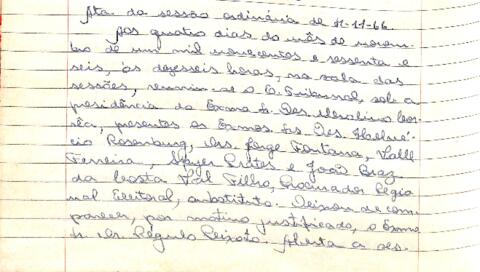 Ata da sessão ordinária de 4-11-66
Aos quatro dias do mês de novem-
bro de um mil novecentos e sessenta e
seis, às dezesseis horas, na sala das
sessões, reuniu-se o E. Tribunal, sob a
presidência do Exmo. Sr. Des. Merolino Cor-
rêa, presentes os Exmos. Srs. Des. Helvé-
cio Rosenburg, Drs. Jorge Fontana, Valle
Ferreira, Sayer Prates e João Braz
da Costa Val Filho, Procurador Regio
nal Eleitoral, substituto. Deixou de com-
parecer, por motivo justificado, o Exmo
Sr. Dr. Régulo Peixoto. Aberta a ses-